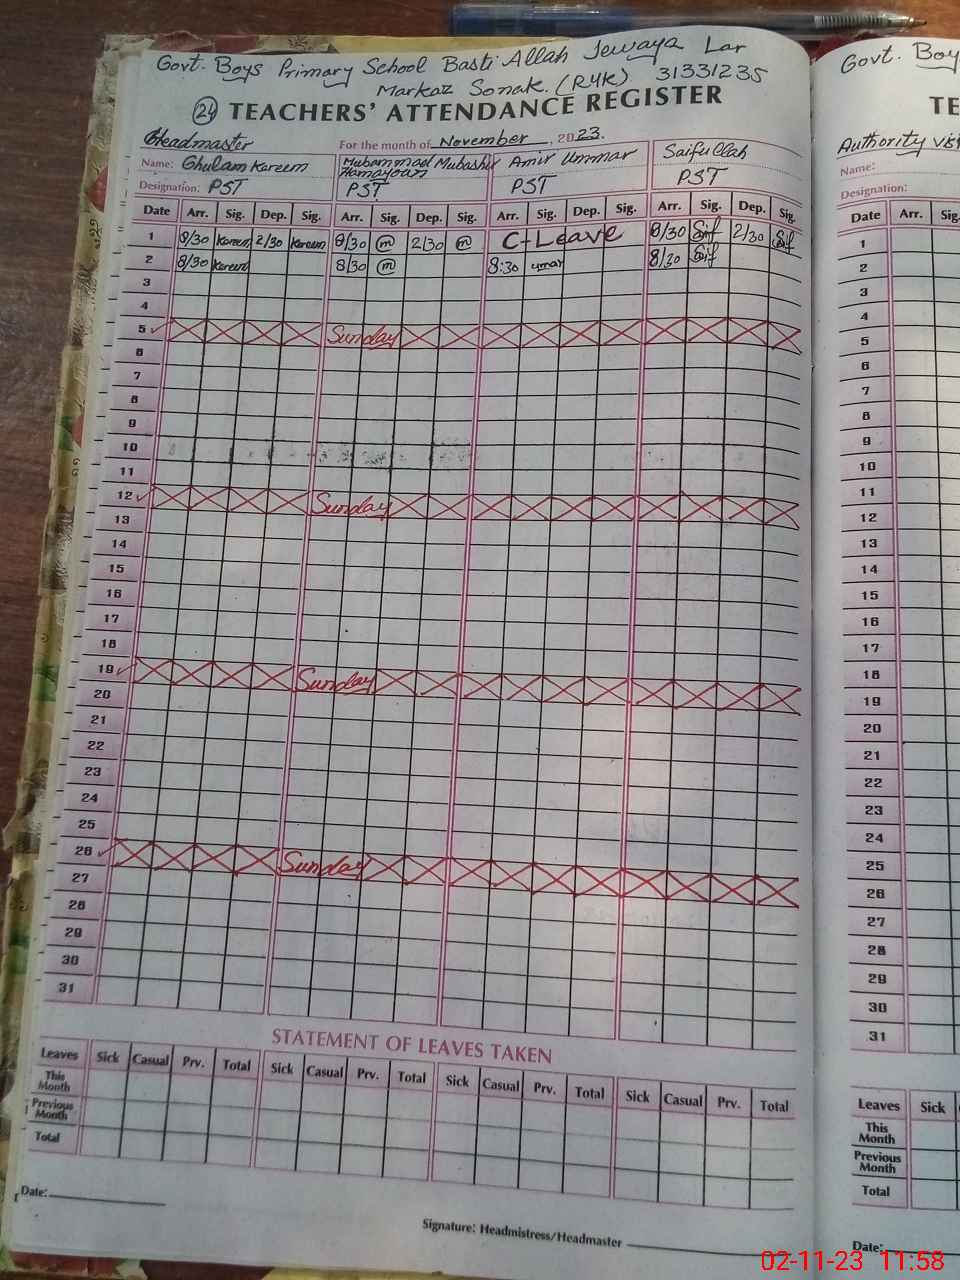 Govt. Boys Primary School Basti Allah Jewaya Lar
Markaz Sonak. (RYK) 31331235
24 TEACHERS' ATTENDANCE REGISTER
Headmaster For the month of November, 2023.
Name: Ghulam Kareem Muhammad Mubashir Hamayoun Amir Ummar Saifullah
Designation: PST PST PST PST
Date Arr. Sig. Dep. Sig. Arr. Sig. Dep. Sig. Arr. Sig. Dep. Sig. Arr. Sig. Dep. Sig.
1 8/30 Kareem 2/30 Kareem 8/30 m 2/30 m C-Leave 8/30 Saif 2/30 Saif
2 8/30 Kareem 8/30 m 8:30 umar 8/30 Saif
3
4
5 Sunday
6
7
8
9
10
11
12 Sunday
13
14
15
16
17
18
19 Sunday
20
21
22
23
24
25
26 Sunday
27
28
29
30
31
STATEMENT OF LEAVES TAKEN
Leaves Sick Casual Prv. Total Sick Casual Prv. Total Sick Casual Prv. Total Sick Casual Prv. Total
This Month
Previous Month
Total
Date:
Signature: Headmistress/Headmaster
Govt. Boy
TE
Authority
Name:
Designation:
Date Arr. Sig.
1
2
3
4
5
6
7
8
9
10
11
12
13
14
15
16
17
18
19
20
21
22
23
24
25
26
27
28
29
30
31
Leaves Sick
This Month
Previous Month
Total
Date:
02-11-23 11:58